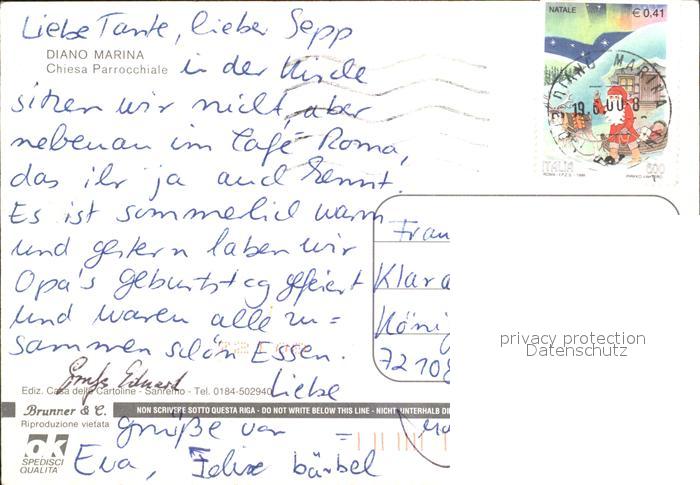 Liebe Tante, lieber Sepp
DIANO MARINA
Chiesa Parrocchiale
in der Kirche
sitzen wir nicht, aber
nebenan im Café Roma,
das ihr ja auch kennt.
Es ist sommerlich warm
und gestern haben wir
Opa's Geburtstag gefeiert
und waren alle zu=
sammen schön Essen.
Liebe
Grüße von =
Eva, Felix Bärbel
Gruß Eduard
Ediz. Casa delle Cartoline - Sanremo - Tel. 0184-502940
Brunner & C.
Riproduzione vietata
NON SCRIVERE SOTTO QUESTA RIGA - DO NOT WRITE BELOW THIS LINE - NICHT UNTERHALB DI
ok
SPEDISCI
QUALITA'
NATALE
€ 0,41
DIANO MARINA
19.6.00-8
ITALIA
800
Frau
Klara
König
72108
privacy protection
Datenschutz